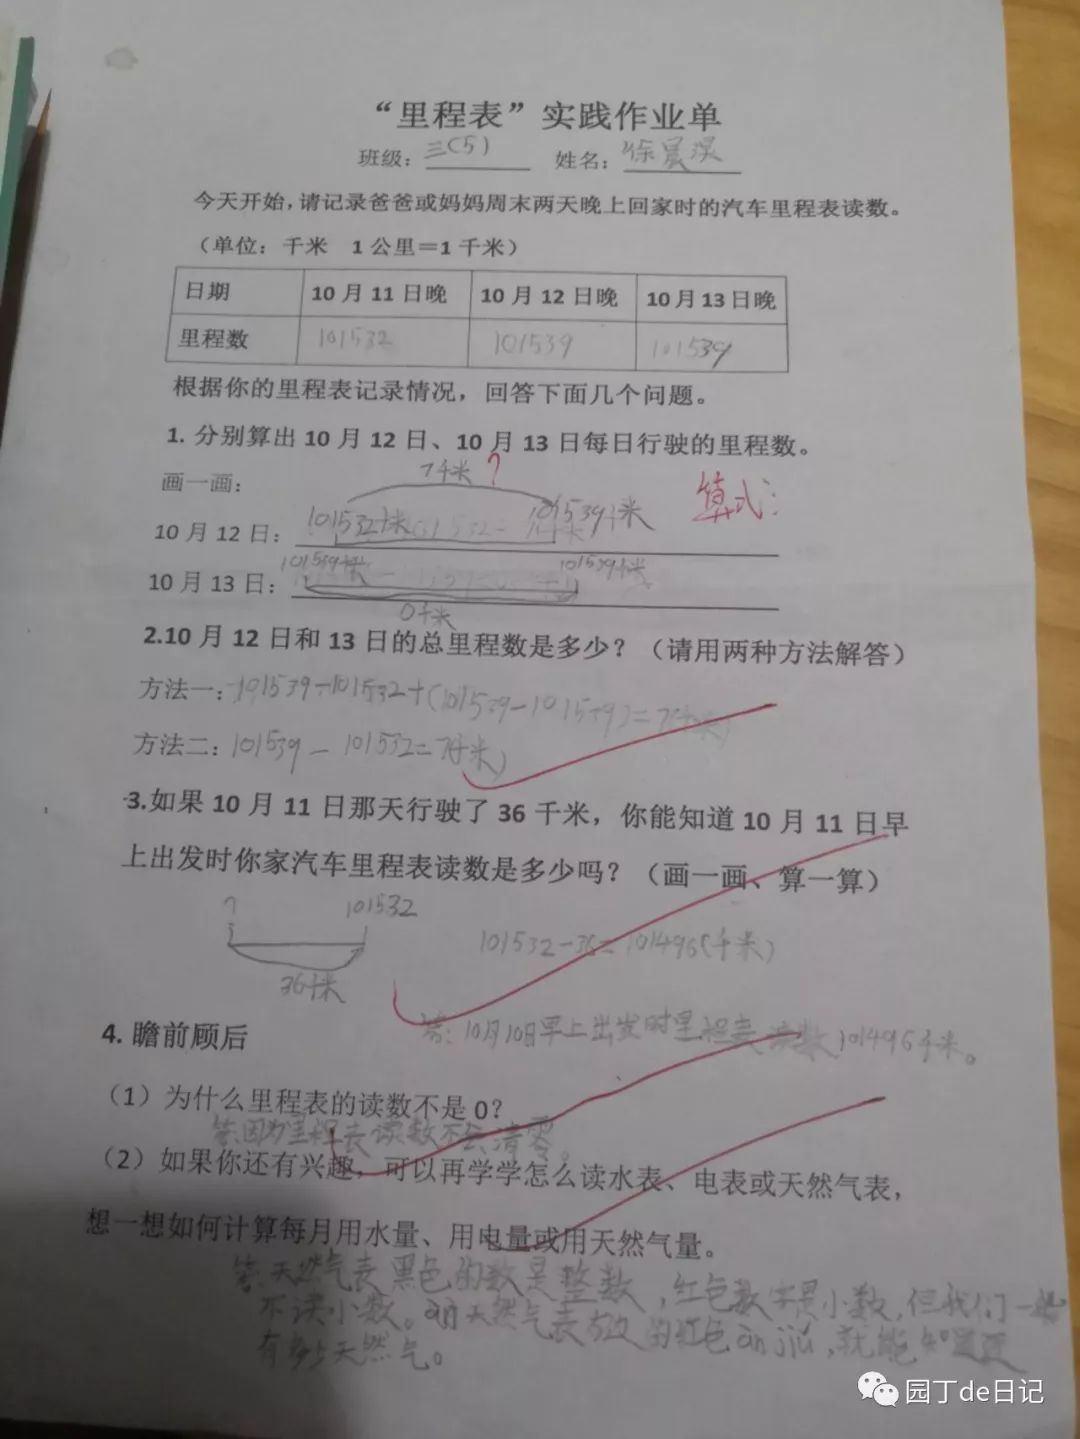 “里程表”实践作业单
班级：三(5) 姓名：徐晨淏
今天开始，请记录爸爸或妈妈周末两天晚上回家时的汽车里程表读数。
（单位：千米 1公里＝1千米）
日期 10月11日晚 10月12日晚 10月13日晚
里程数 101532 101539 101539
根据你的里程表记录情况，回答下面几个问题。
1. 分别算出10月12日、10月13日每日行驶的里程数。
画一画：
7千米 ?
算式：
10月12日：101532千米 101539千米
10月13日：101539千米 101539千米
0千米
2.10月12日和13日的总里程数是多少？（请用两种方法解答）
方法一：101539-101532+(101539-101539)=7(千米)
方法二：101539-101532=7(千米)
3.如果10月11日那天行驶了36千米，你能知道10月11日早
上出发时你家汽车里程表读数是多少吗？（画一画、算一算）
? 101532
36千米
101532-36=101496(千米)
答：10月10日早上出发时里程表读数101496千米。
4. 瞻前顾后
（1）为什么里程表的读数不是0？
答：因为里程表读数不会清零。
（2）如果你还有兴趣，可以再学学怎么读水表、电表或天然气表，
想一想如何计算每月用水量、用电量或用天然气量。
答：天然气表黑色的数是整数，红色数字是小数，但我们一般
不读小数。àn天然气表的红色àn jiù，就能知道还
有多少天然气。
园丁de日记